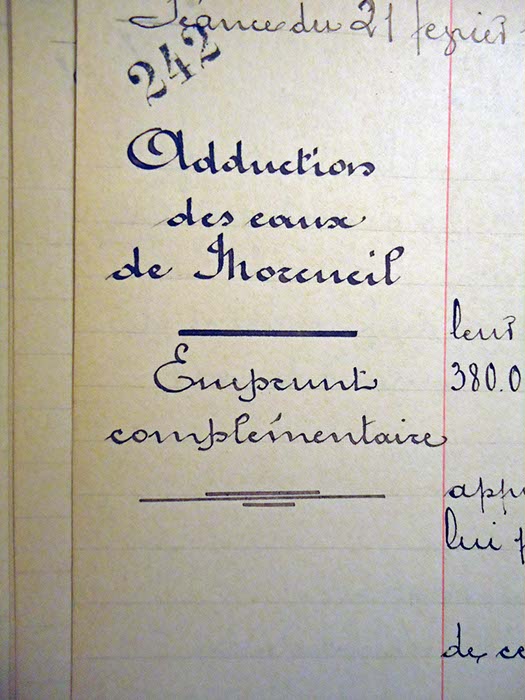 Séance du 21 février
242
Adduction
des eaux
de Moreuil
leur
Emprunt
380.0
complémentaire
appr
lui p
de ce